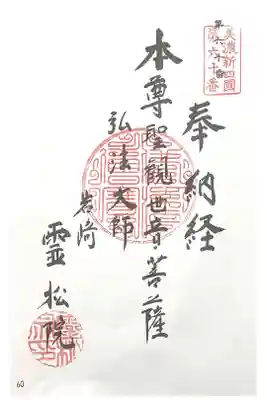 美濃新四國
第六十番
奉納経
本尊聖観世音菩薩
弘法大師
岩﨑
霊松院
60